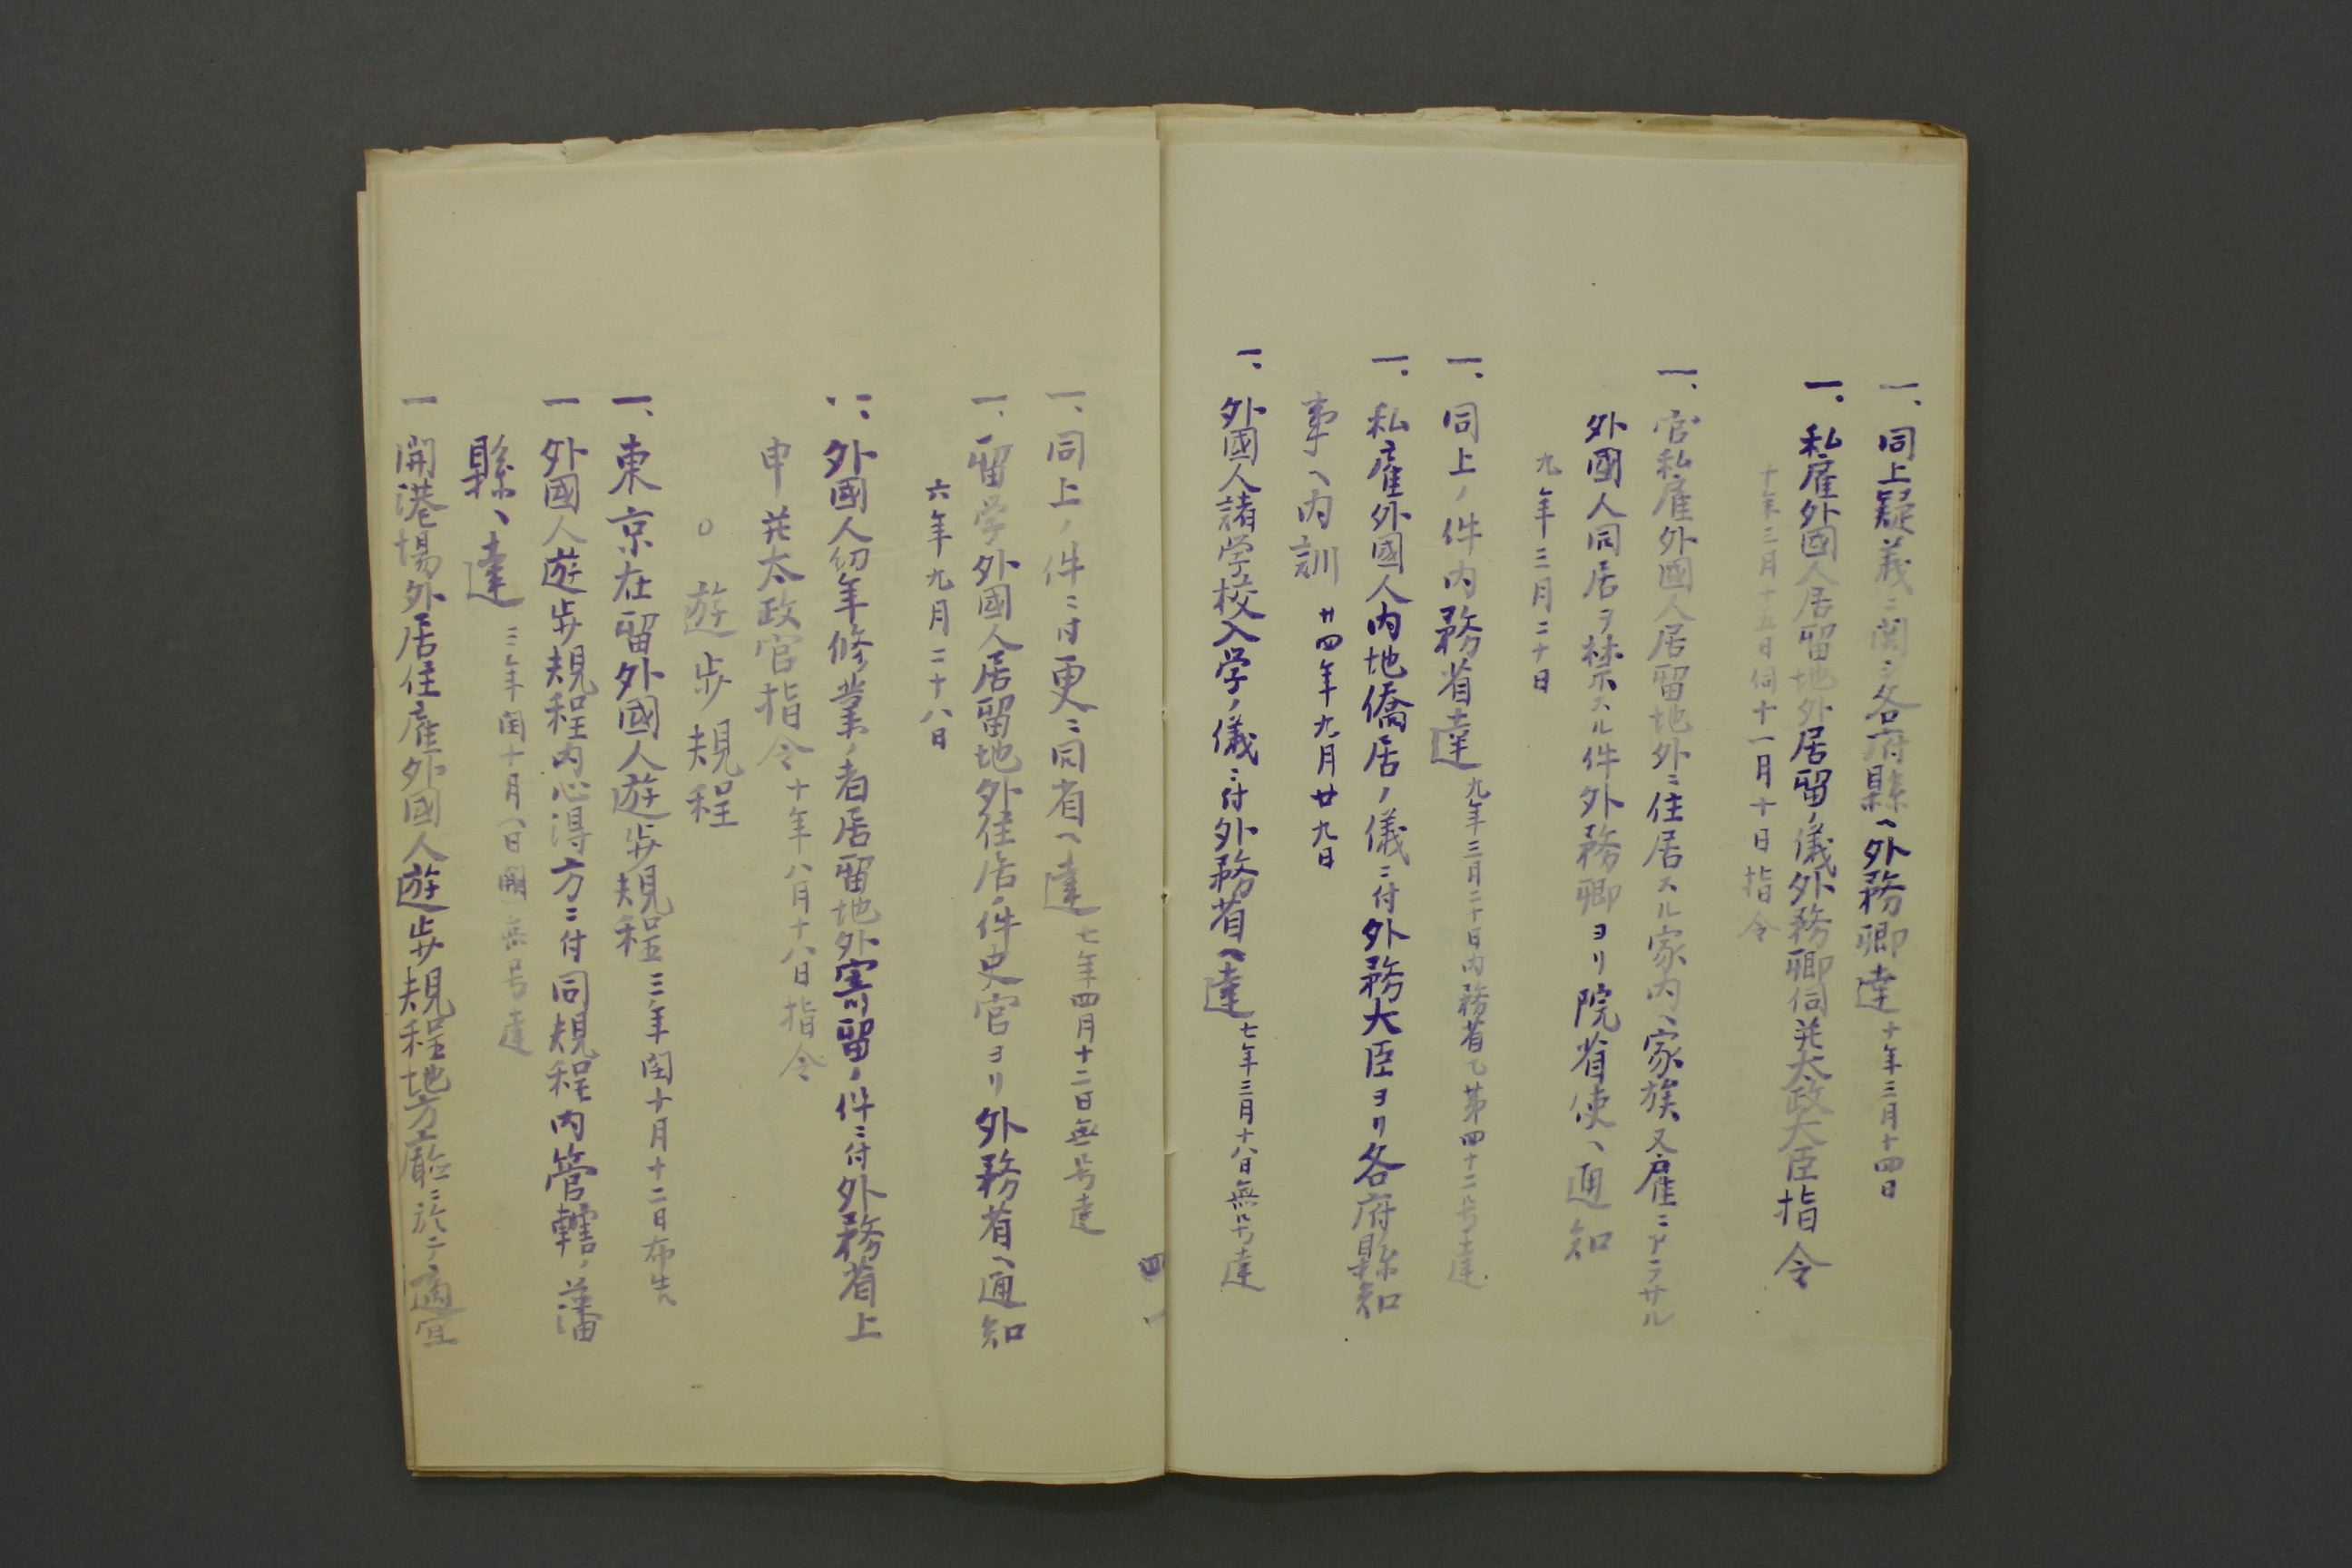 一、同上疑義ニ関シ各府縣ヘ外務卿達 十年三月十四日
一、私雇外國人居留地外居留ノ儀外務卿伺并太政大臣指令
十年三月十五日伺十一月十日指令
一、官私雇外國人居留地外ニ住居スル家内ヘ家族又雇ニアラサル
外國人同居ヲ禁スル件外務卿ヨリ院省使ヘ通知
九年三月二十日
一、同上ノ件内務省達 九年三月二十日内務省乙第四十二号達
一、私雇外國人内地僑居ノ儀ニ付外務大臣ヨリ各府縣知
事ヘ内訓 廿四年九月廿九日
一、外國人諸学校入学ノ儀ニ付外務省ヘ達 七年三月十八日無号達
四
一、同上ノ件ニ付更ニ同省ヘ達 七年四月十二日無号達
一、留学外國人居留地外住居ノ件史官ヨリ外務省ヘ通知
六年九月二十八日
一、外國人幼年修業ノ者居留地外寄留ノ件ニ付外務省上
申并太政官指令 十年八月十八日指令
○ 遊歩規程
一、東京在留外國人遊歩規程 三年閏十月十二日布告
一 外國人遊歩規程内心得方ニ付同規程内管轄ノ藩
縣ヘ達 三年閏十月八日 無号達
一 開港場外居住雇外國人遊歩規程地方廳ニ於テ適宜